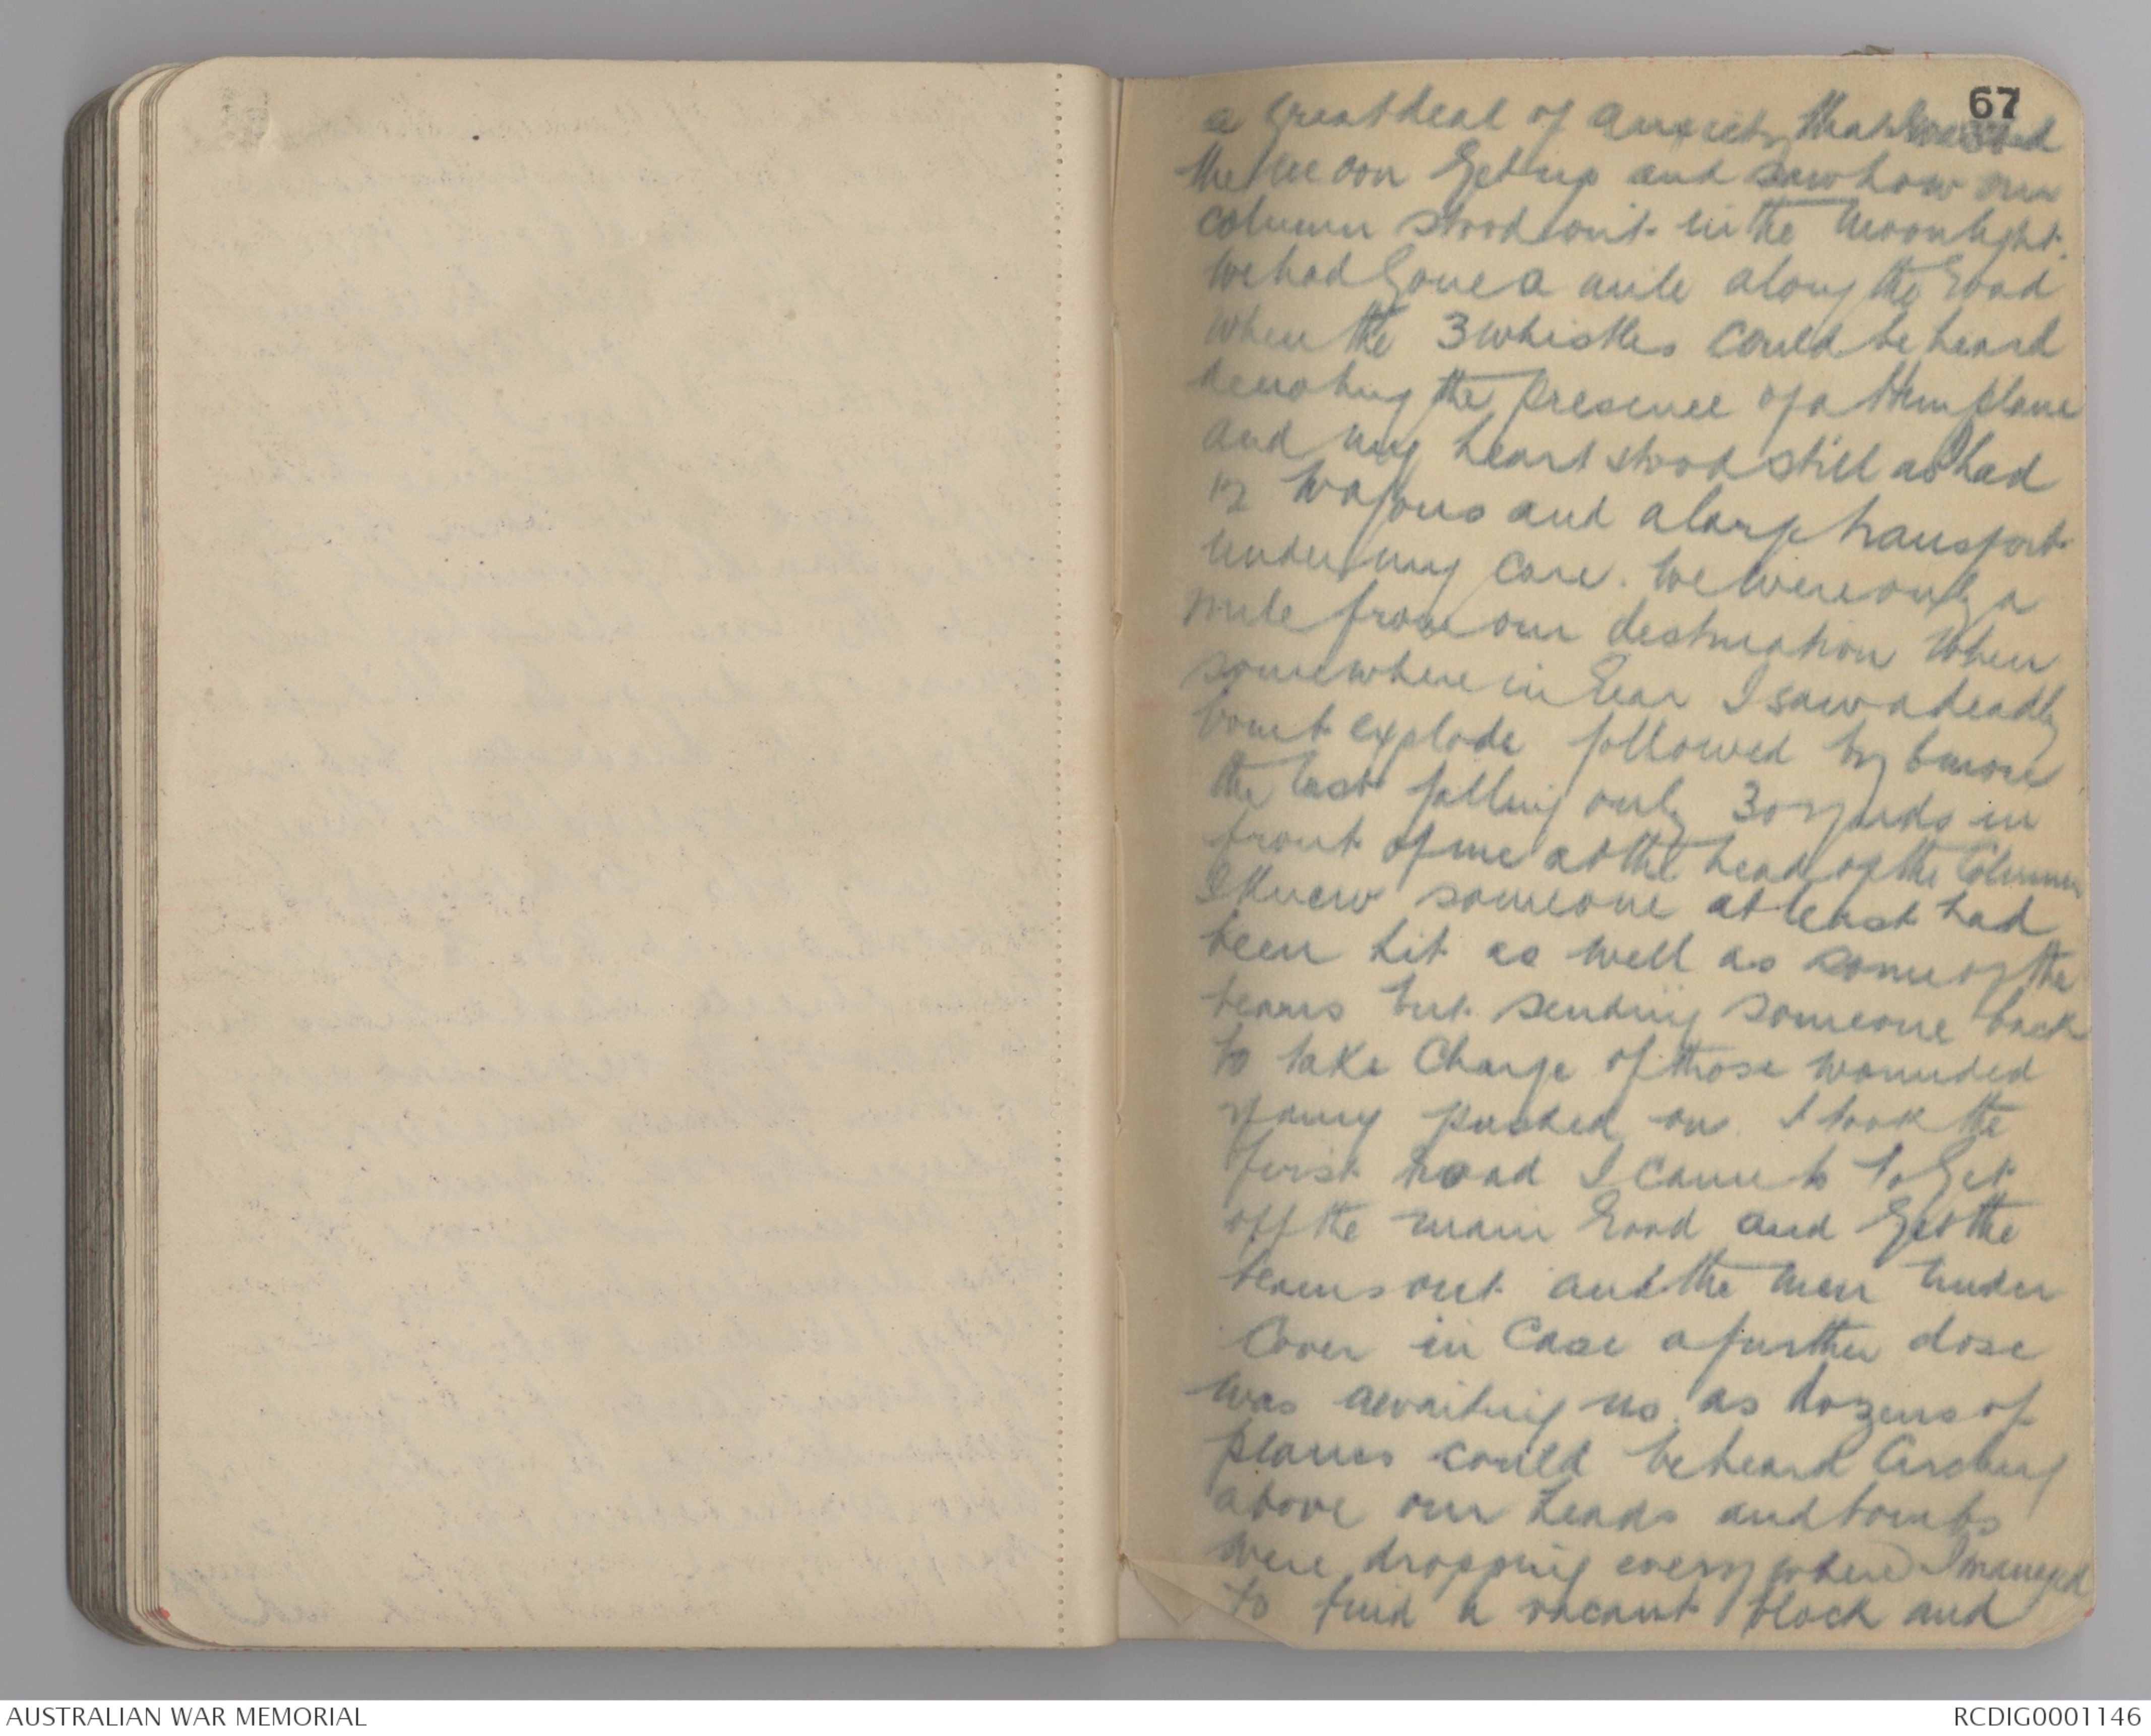 67
a great deal of anxiety that I watched
the moon get up and saw how our
column stood out in the moonlight.
We had gone a mile along the road
when the 3 whistles could be heard
denoting the presence of a Hun plane
and my heart stood still as I had
12 wagons and a large transport
under my care. We were only a
mile from our destination when
somewhere in rear I saw a deadly
bomb explode followed by 6 more
the last falling only 30 yards in
front of me at the head of the Column
I knew someone at least had
been hit as well as some of the
teams but sending someone back
to take charge of those wounded
pushed on I took the
first road I came to to get
off the main road and got the
teams out and the men under
Cover in Case a further dose
was awaiting us as dozens of
planes could be heard circling
above our heads and bombs
were dropping everywhere I managed
to find a vacant block and
AUSTRALIAN WAR MEMORIAL
RCDIG0001146